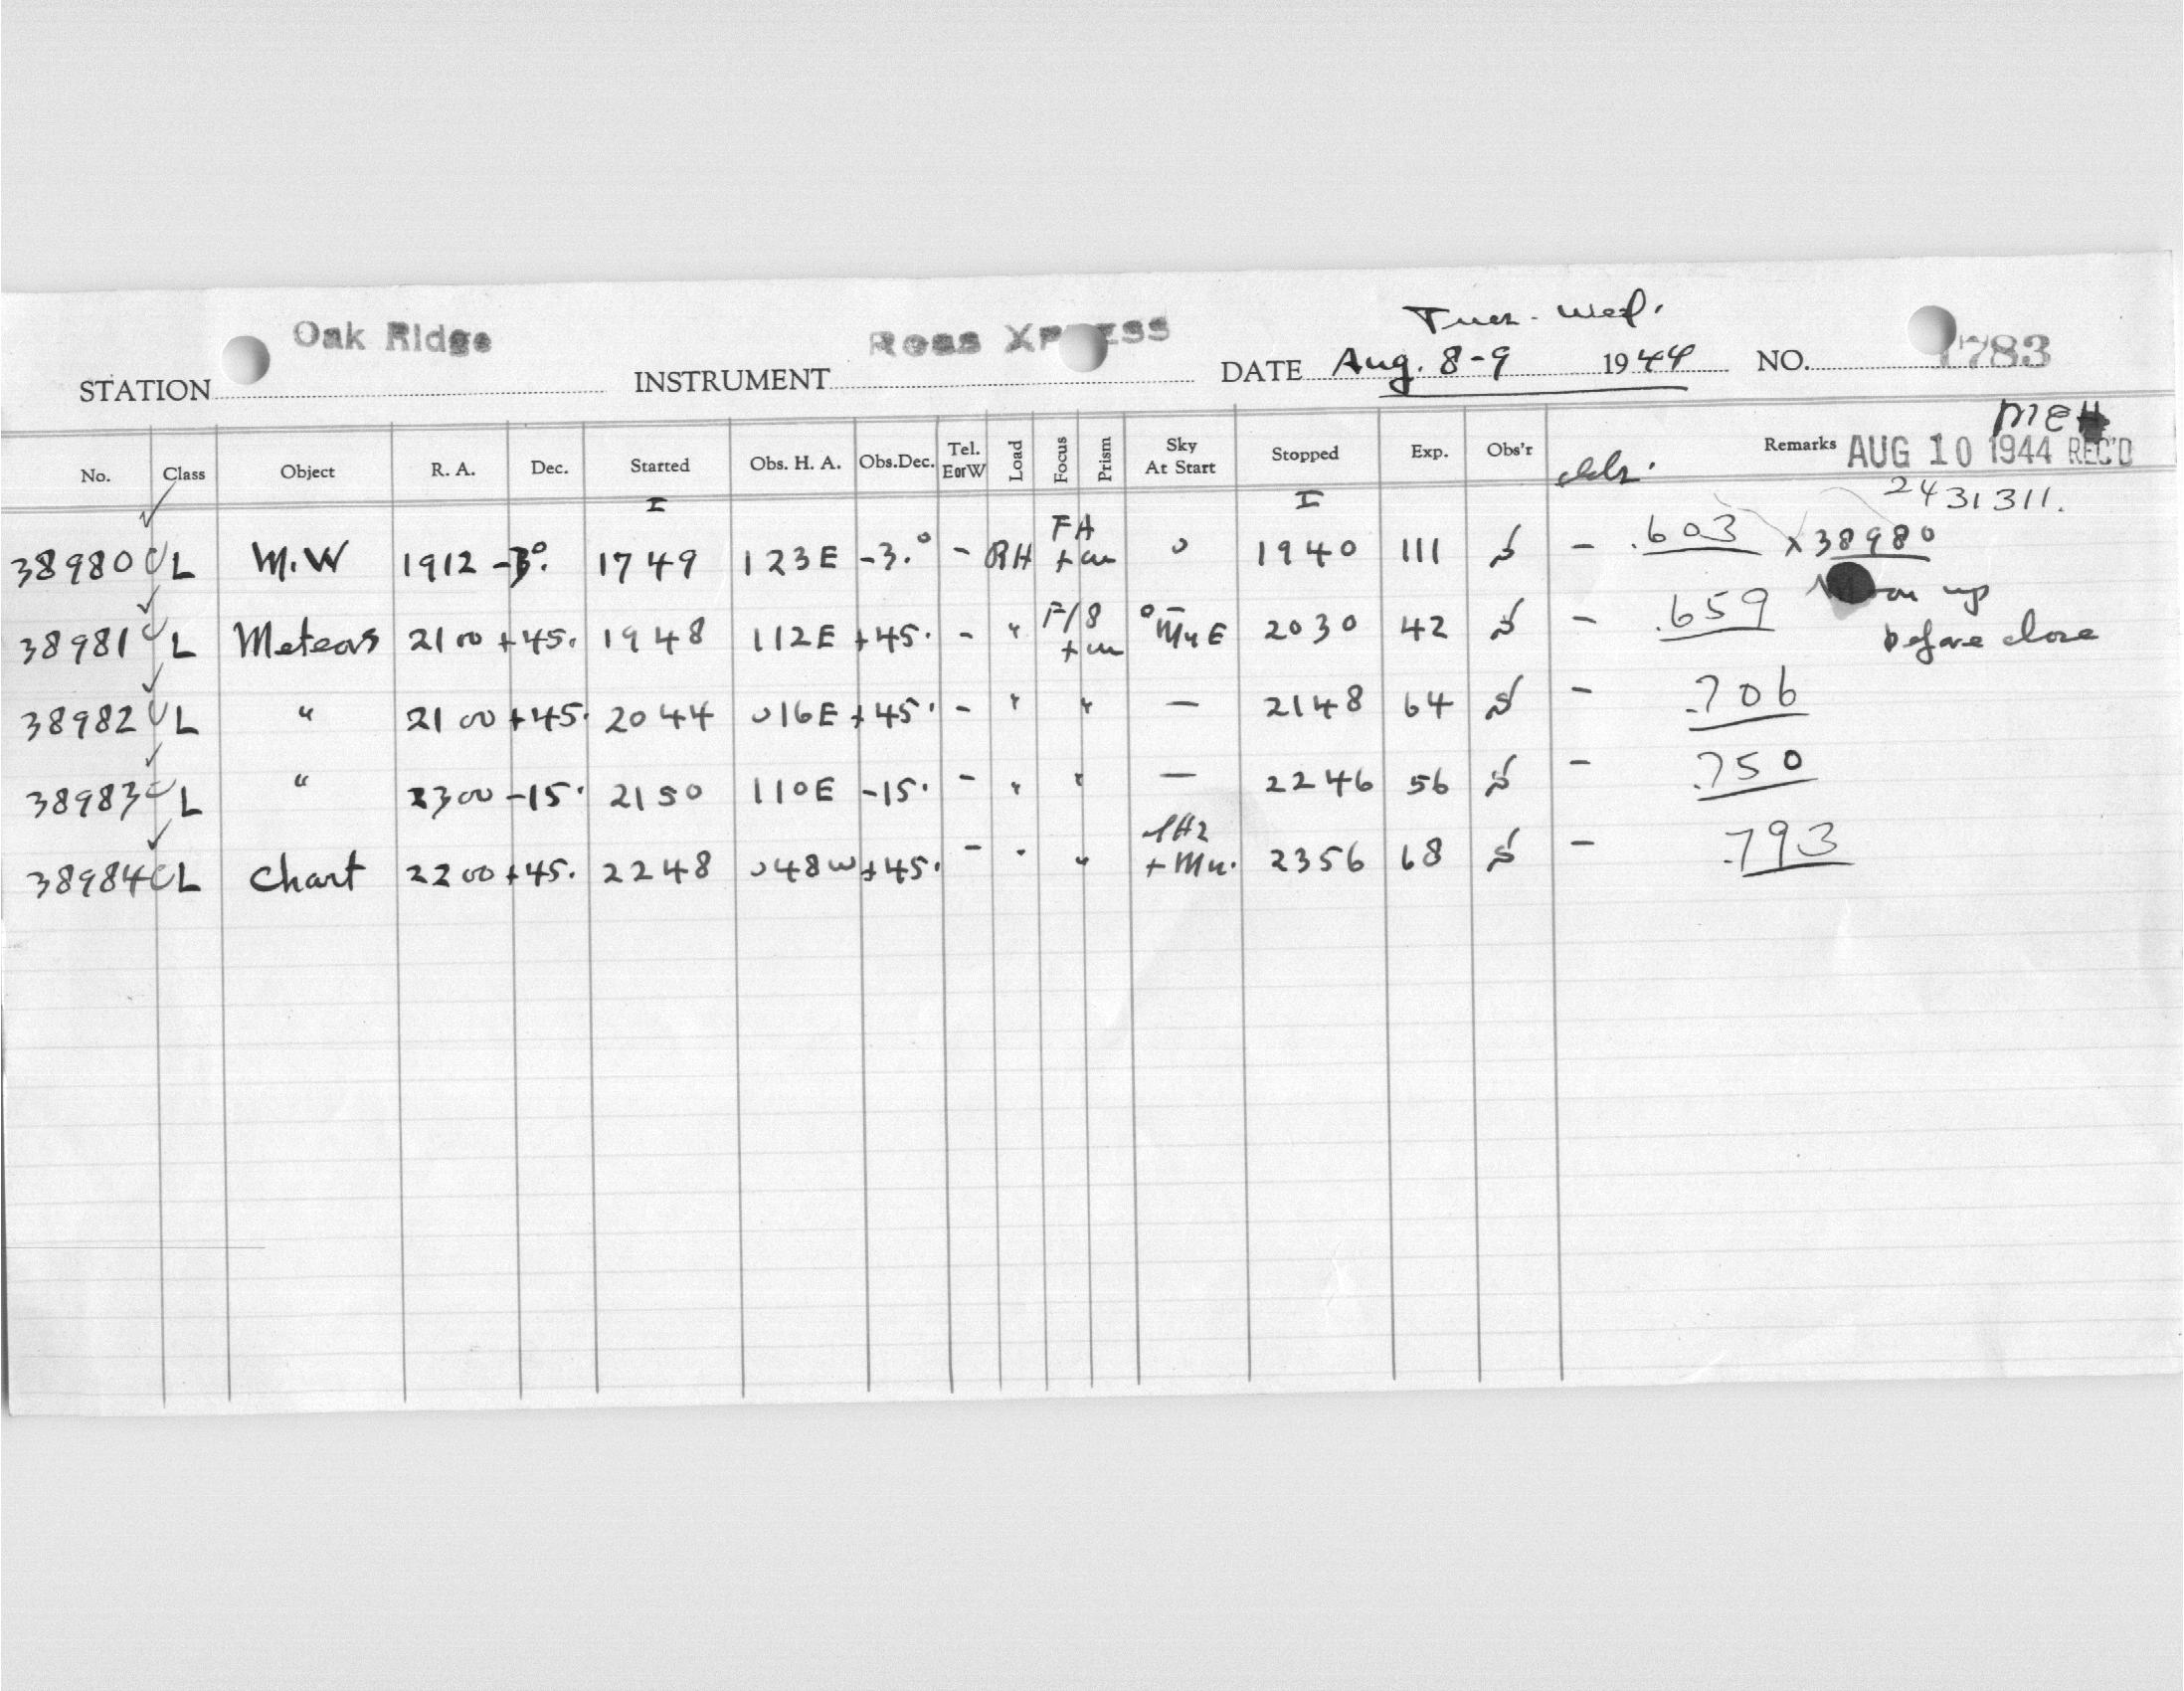 Tues. - Wed.
STATION Oak Ridge INSTRUMENT Ross XPRESS DATE Aug. 8-9 1944 NO. 1783
MEH
No. Class Object R. A. Dec. Started Obs. H. A. Obs.Dec. Tel. E or W Load Focus Prism Sky At Start Stopped Exp. Obs'r Remarks AUG 10 1944 REC'D
I I 2431311.
38980 L M.W 1912 -3°. 1749 123E -3.° - RH FA + cu 0 1940 111 S - .603 x 38980
38981 L Meteors 2100 +45. 1948 112E +45. - " F/8 + cu 0 - Mn E 2030 42 S - .659 Moon up before close
38982 L " 2100 +45. 2044 016E +45. - " " — 2148 64 S - .706
38983 L " 2300 -15. 2150 110E -15. - " " — 2246 56 S - .750
38984 L Chart 2200 +45. 2248 048W +45. - " " + Mn. 2356 68 S - .793